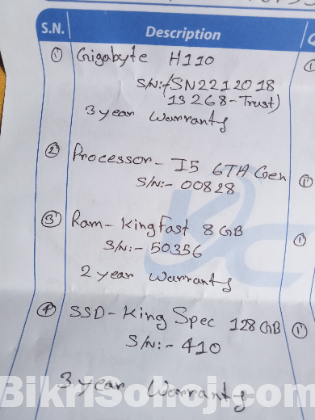 S.N. Description
① Gigabyte H110
S/N:-(SN2212018
13268-Trust)
3 year Warranty
② Processor- I5 6TH Gen
S/N:- 00828
③ Ram- KingFast 8 GB
S/N:- 50356
2 year Warranty
④ SSD- King Spec 128GB
S/N:- 410
3 year Warranty
BikriSohoj.com